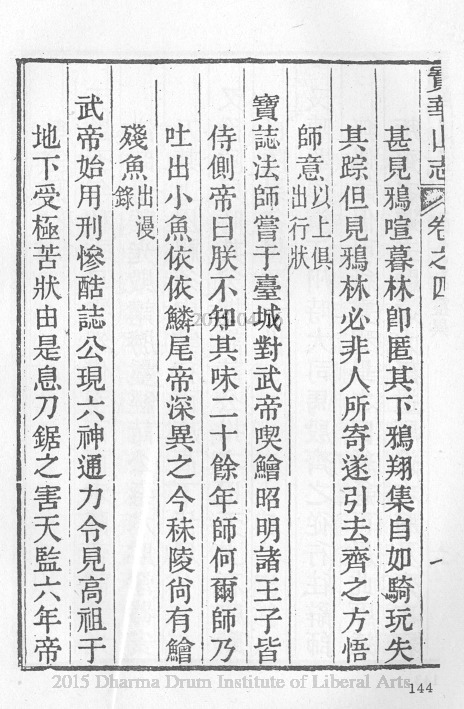 寶華山志 卷之四 一
甚見鴉喧暮林卽匿其下鴉翔集自如騎玩失
其踪但見鴉林必非人所寄遂引去齊之方悟
師意以上俱出行狀
寶誌法師嘗于臺城對武帝喫鱠昭明諸王子皆
侍側帝曰朕不知其味二十餘年師何爾師乃
吐出小魚依依鱗尾帝深異之今秣陵尙有鱠
殘魚出漫錄
武帝始用刑慘酷誌公現六神通力令見高祖于
地下受極苦狀由是息刀鋸之害天監六年帝
2015 Dharma Drum Institute of Liberal Arts
144